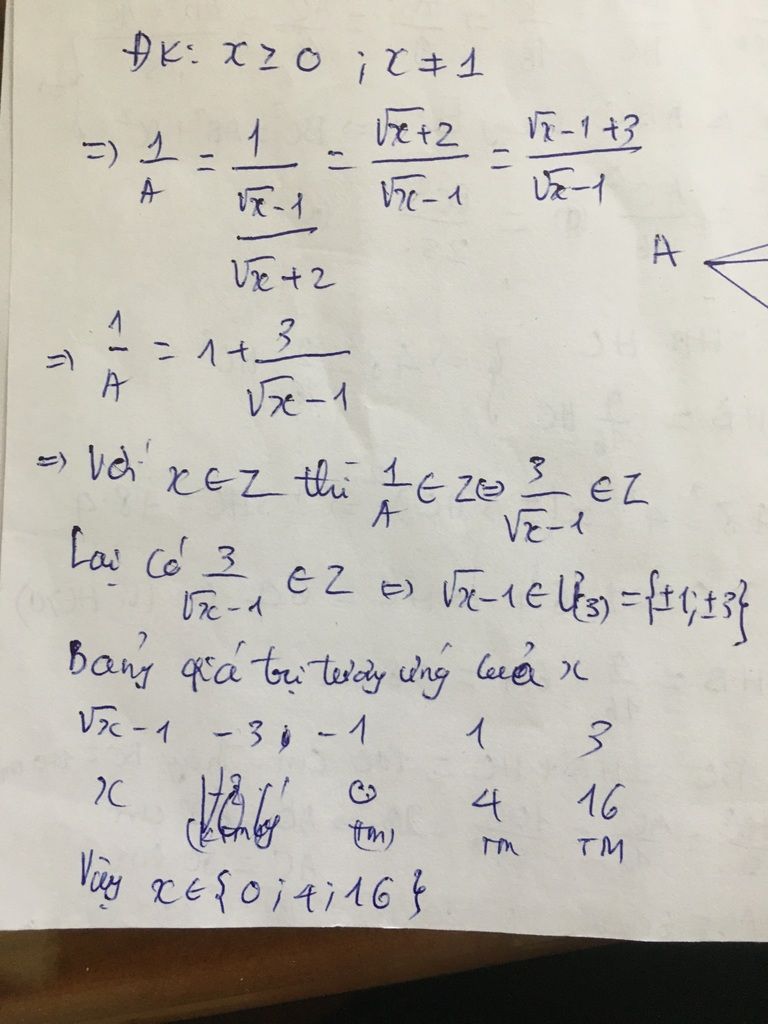 ĐK: x ≥ 0 ; x ≠ 1
=> 1/A = 1/((√x-1)/(√x+2)) = (√x+2)/(√x-1) = (√x-1+3)/(√x-1)
A
=> 1/A = 1 + 3/(√x-1)
=> Với x ∈ Z thì 1/A ∈ Z <=> 3/(√x-1) ∈ Z
Lại có 3/(√x-1) ∈ Z <=> √x-1 ∈ Ư(3) = {±1; ±3}
Bảng giá trị tương ứng của x
√x-1 -3 -1 1 3
x 0 4 16
(tm) TM TM
Vậy x ∈ {0; 4; 16}